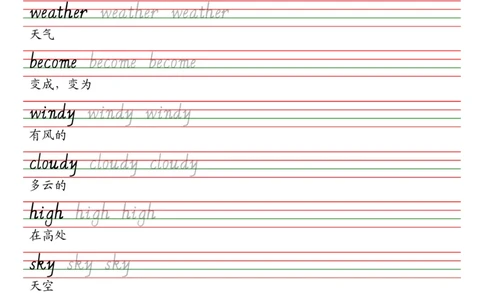 weather weather weather
天气
become become become
变成，变为
windy windy windy
有风的
cloudy cloudy cloudy
多云的
high high high
在高处
sky sky sky
天空